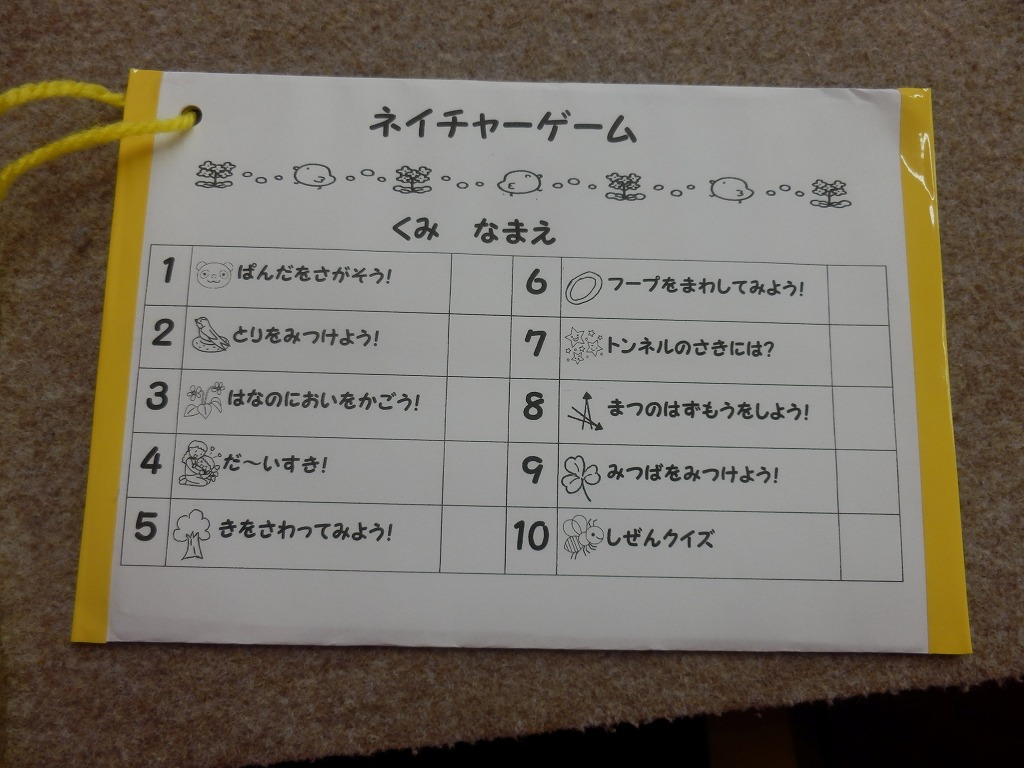 ネイチャーゲーム
くみ なまえ
1 ぱんだをさがそう!
2 とりをみつけよう!
3 はなのにおいをかごう!
4 だ〜いすき!
5 きをさわってみよう!
6 フープをまわしてみよう!
7 トンネルのさきには?
8 まつのはずもうをしよう!
9 みつばをみつけよう!
10 しぜんクイズ